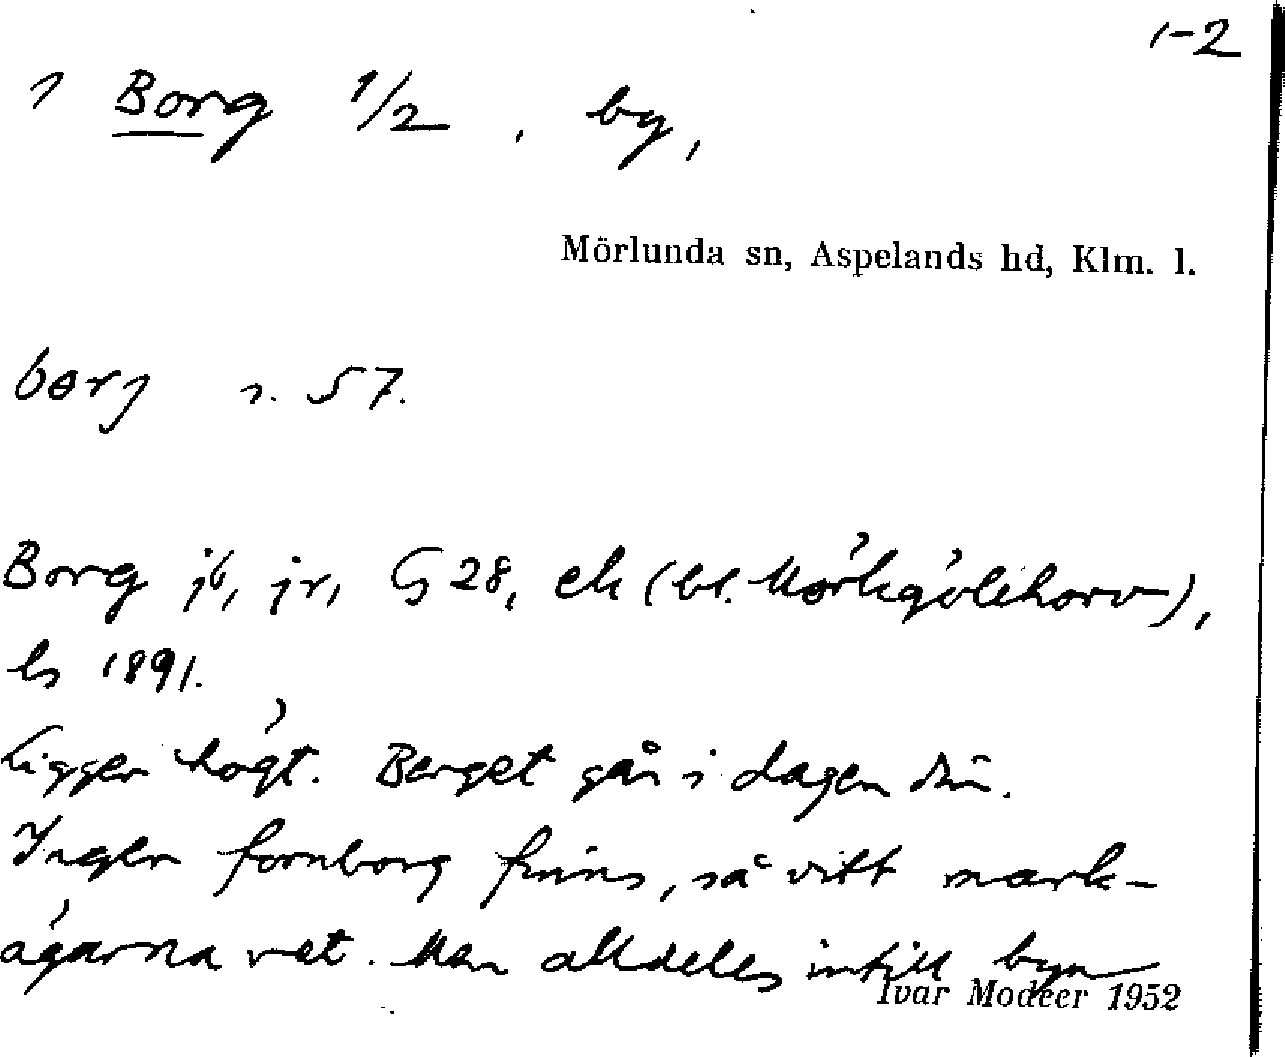 1-2
1 Borg 1/2, by,
Mörlunda sn, Aspelands hd, Klm. l.
borj s. 57.
Borg jb, jr, G 28, ek (bl. Mörkgölehorv),
ls 1891.
Ligger högt. Berget går i dagen där.
Ingen fornborg finns, så vitt mark-
ägarna vet. Men alldeles intill byn
Ivar Modéer 1952